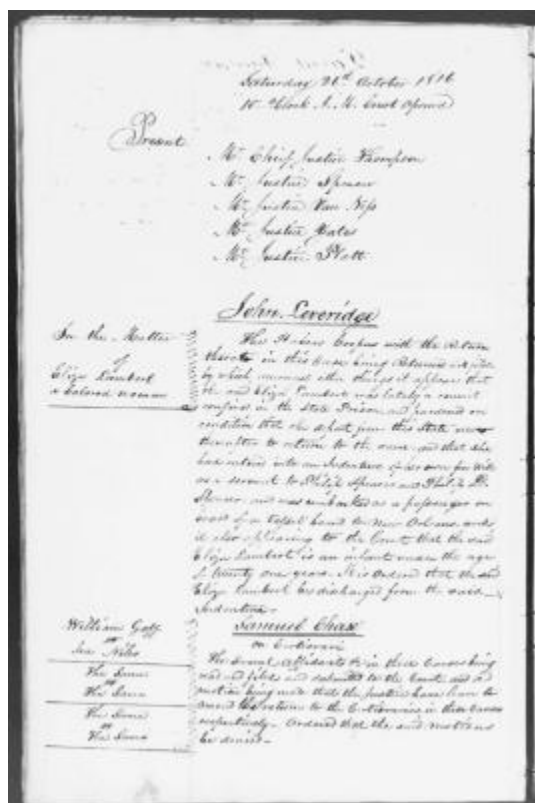 Saturday 26th October 1816
10 oClock A. M. Court opened
Present
Mr Chief Justice Thompson
Mr Justice Spencer
Mr Justice Van Ness
Mr Justice Yates
Mr Justice Platt
John Leveridge
In the Matter
of
Eliza Lambert
a Colored woman
The Habeas Corpus with the Return
thereto in this Cause being Returned and filed
by which amongst other things it appears that
the said Eliza Lambert was lately a convict
confined in the State Prison and pardoned on
condition that she depart from this State never
thereafter to return to the same and that she
had entered into an Indenture
as a servant to Philip Spencer and Philip
Spencer and was embarked as a passenger on
board of a vessel bound to New Orleans and
it also appearing to the Court that the said
Eliza Lambert is an infant under the age
of twenty one years. It is Ordered that the said
Eliza Lambert be discharged from the said
Indenture
William Goff
vs
Niblo
The Same
vs
The Same
The Same
vs
The Same
Samuel Chase
on Certiorari
The several affidavits &c in these Causes being
read and filed and submitted to the Court and a
motion being made that the Justice have leave to
amend the returns to the Certioraries in these Causes
respectively. Ordered that the said motions
be denied